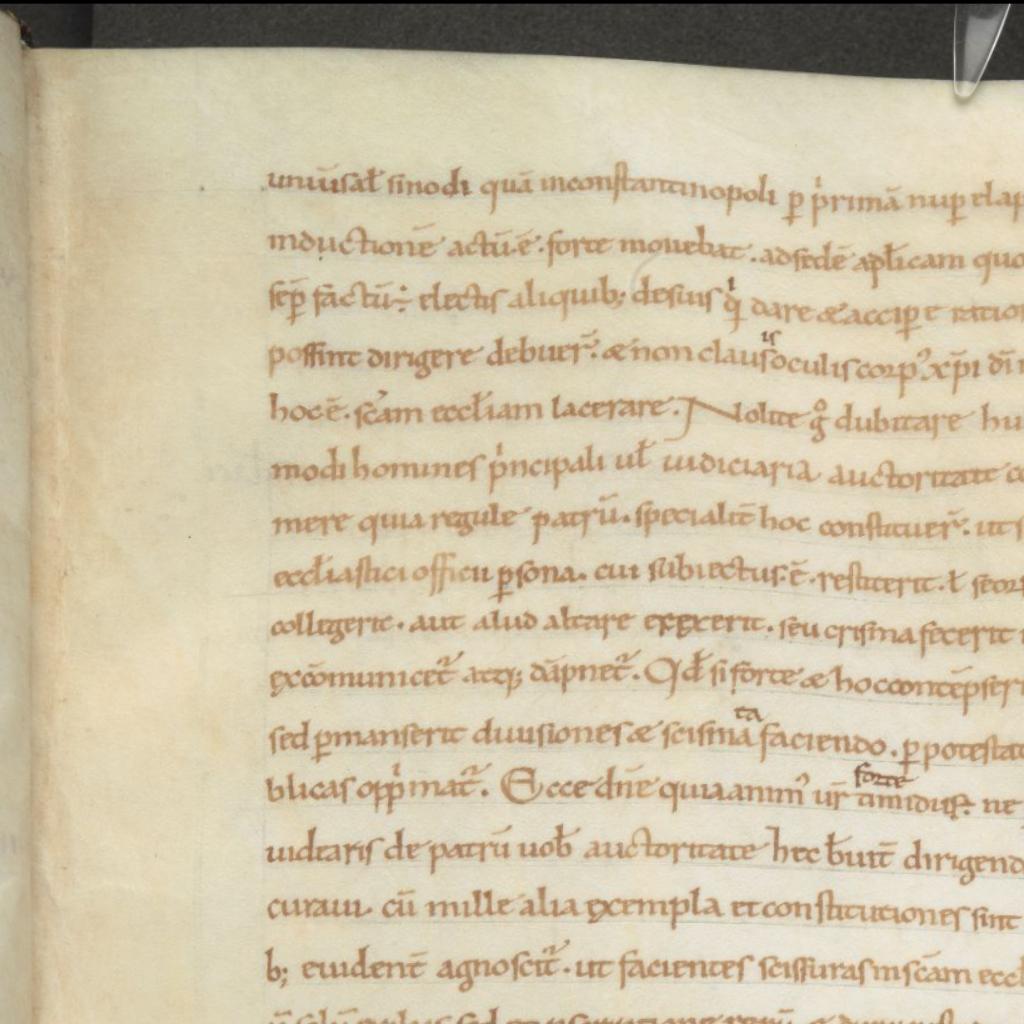 uniũsał sinodi quã inconstantinopoli ꝑ pͥrimã nuꝑ elap
inductionẽ actũ.ẽ. forte mouebat. adsedẽ apłicam quo
sep̃ factũ ÷ electis aliquib; desuis qͥ dare &acciꝑe ratio
possint dirigere debuer̃. &non clausisoculis corpꝰ xp̃i dñi
hocẽ. scãm eccłiam lacerare. Nolite gͦ dubitare hu
modi homines pͥncipali uł iudiciaria auctoritate
mere quia regule patrũ. specialit̃ hoc constituer̃. ut s
eccłiastici officii ꝑsona. cui subiectus.ẽ. restiterit. ł seor
colligerit. aut aliud altare erexerit. seu crisma fecerit
excõmunicet᷑ atq; dãpnet᷑. Qd̃ si forte & hoccontẽpseri
sed ꝑmanserit diuisiones & scismãta faciendo. ꝑ potestat
blicas oppͥmat᷑. Ecce dñe quiaanimꝰ ur̃ forte timidus÷ ne
uidearis de patrũ uob̃ auctoritate hec b̃uit̃ dirigend
curaui. cũ mille alia exempla etconstitutiones sint
b; euident̃ agnoscit᷑. ut facientes scissuras inscãm eccł